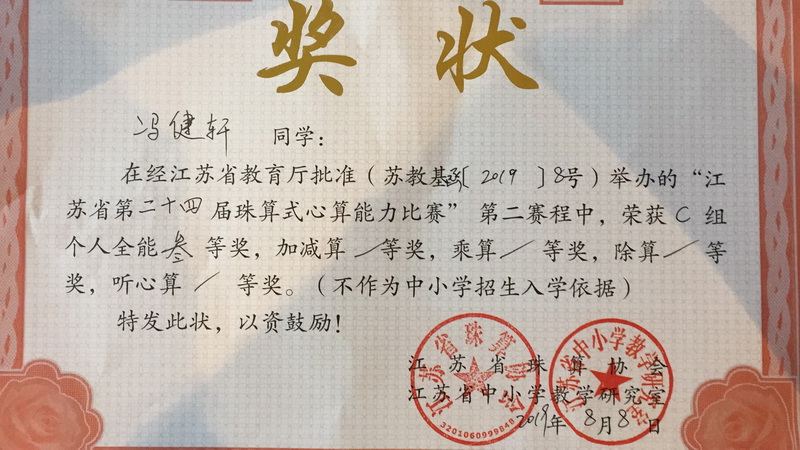 奖状
冯健轩 同学：
在经江苏省教育厅批准（苏教基函〔2019〕8号）举办的“江
苏省第二十四届珠算式心算能力比赛”第二赛程中，荣获C组
个人全能叁等奖，加减算／等奖，乘算／等奖，除算／等
奖，听心算／等奖。（不作为中小学招生入学依据）
特发此状，以资鼓励！
江苏省珠算协会
江苏省中小学教学研究室
2019年8月8日
江苏省珠算协会
3201060999848
江苏省中小学教学研究室